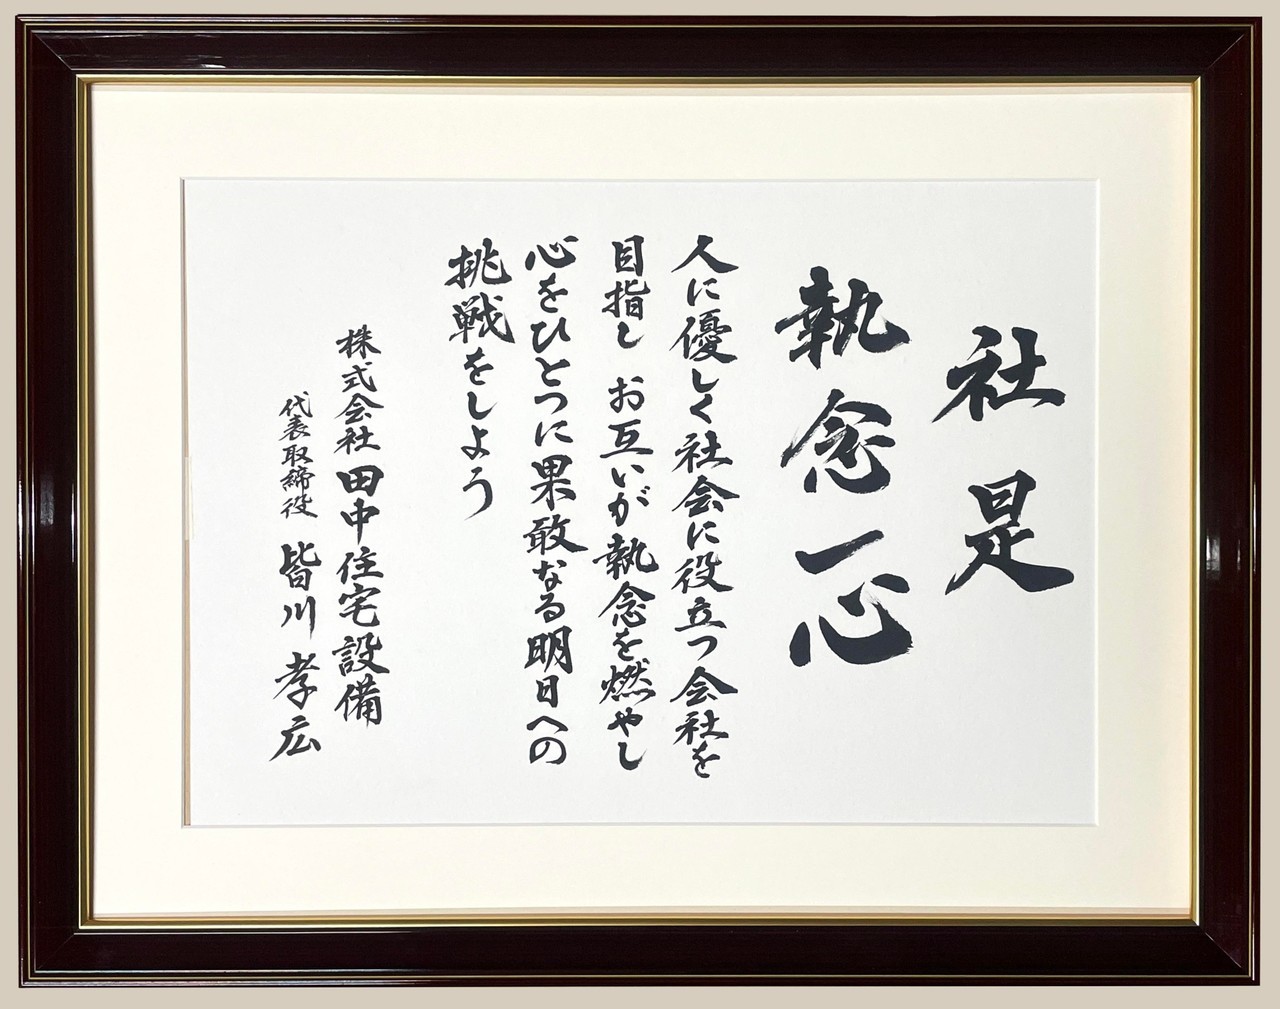 社是
執念一心
人に優しく社会に役立つ会社を
目指し お互いが執念を燃やし
心をひとつに果敢なる明日への
挑戦をしよう
株式会社 田中住宅設備
代表取締役 皆川 孝広